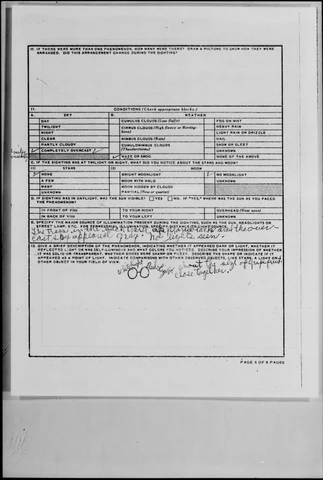 10. IF THERE WERE MORE THAN ONE PHENOMENON, HOW MANY WERE THERE? DRAW A PICTURE TO SHOW HOW THEY WERE
ARRANGED. DID THIS ARRANGEMENT CHANGE DURING THE SIGHTING?
11. CONDITIONS (Check appropriate blocks.)
A. SKY B. WEATHER
DAY CUMULUS CLOUDS (Low fluffy) FOG OR MIST
TWILIGHT CIRRUS CLOUDS HEAVY RAIN
NIGHT NIMBUS CLOUDS (Rain) LIGHT RAIN OR DRIZZLE
CLEAR HAIL
PARTLY CLOUDY CUMULONIMBUS CLOUDS (Thunderstorms) SNOW OR SLEET
COMPLETELY OVERCAST UNKNOWN
HAZE OR SMOG NONE OF THE ABOVE
C. IF THE SIGHTING WAS AT TWILIGHT OR NIGHT, WHAT DID YOU NOTICE ABOUT THE STARS AND MOON?
STARS MOON
NONE BRIGHT MOONLIGHT NO MOONLIGHT
A FEW MOON WITH HALO UNKNOWN
MANY MOON HIDDEN BY CLOUDS
UNKNOWN PARTIAL
D. IF SIGHTING WAS IN DAYLIGHT, WAS THE SUN VISIBLE? YES NO. IF "YES," WHERE WAS THE SUN AS YOU FACED
THE PHENOMENON?
IN FRONT OF YOU TO YOUR RIGHT OVERHEAD
IN BACK OF YOU TO YOUR LEFT UNKNOWN
E. SPECIFY THE MAJOR SOURCE OF ILLUMINATION PRESENT DURING THE SIGHTING, SUCH AS THE SUN, HEADLIGHTS OR
STREET LAMP, ETC. FOR TERRESTRIAL ILLUMINATION, SPECIFY DISTANCE TO LIGHT SOURCE.
overcast appeared gray. No lights seen.
12. GIVE A BRIEF DESCRIPTION OF THE PHENOMENON, INDICATING WHETHER IT APPEARED DARK OR LIGHT, WHETHER IT
REFLECTED LIGHT OR WAS SELF-LUMINOUS AND WHAT COLORS YOU NOTICED. DESCRIBE YOUR IMPRESSION OF WHETHER
IT WAS SOLID OR TRANSPARENT, WHETHER EDGES WERE SHARP OR FUZZY. DESCRIBE THE SHAPE OR INDICATE IF IT
APPEARED AS A POINT OF LIGHT. INDICATE COMPARISONS WITH OTHER OBSERVED OBJECTS, LIKE STARS, A LIGHT OR
OTHER OBJECT IN YOUR FIELD OF VIEW.
the size of
close together.
PAGE 4 OF 5 PAGES